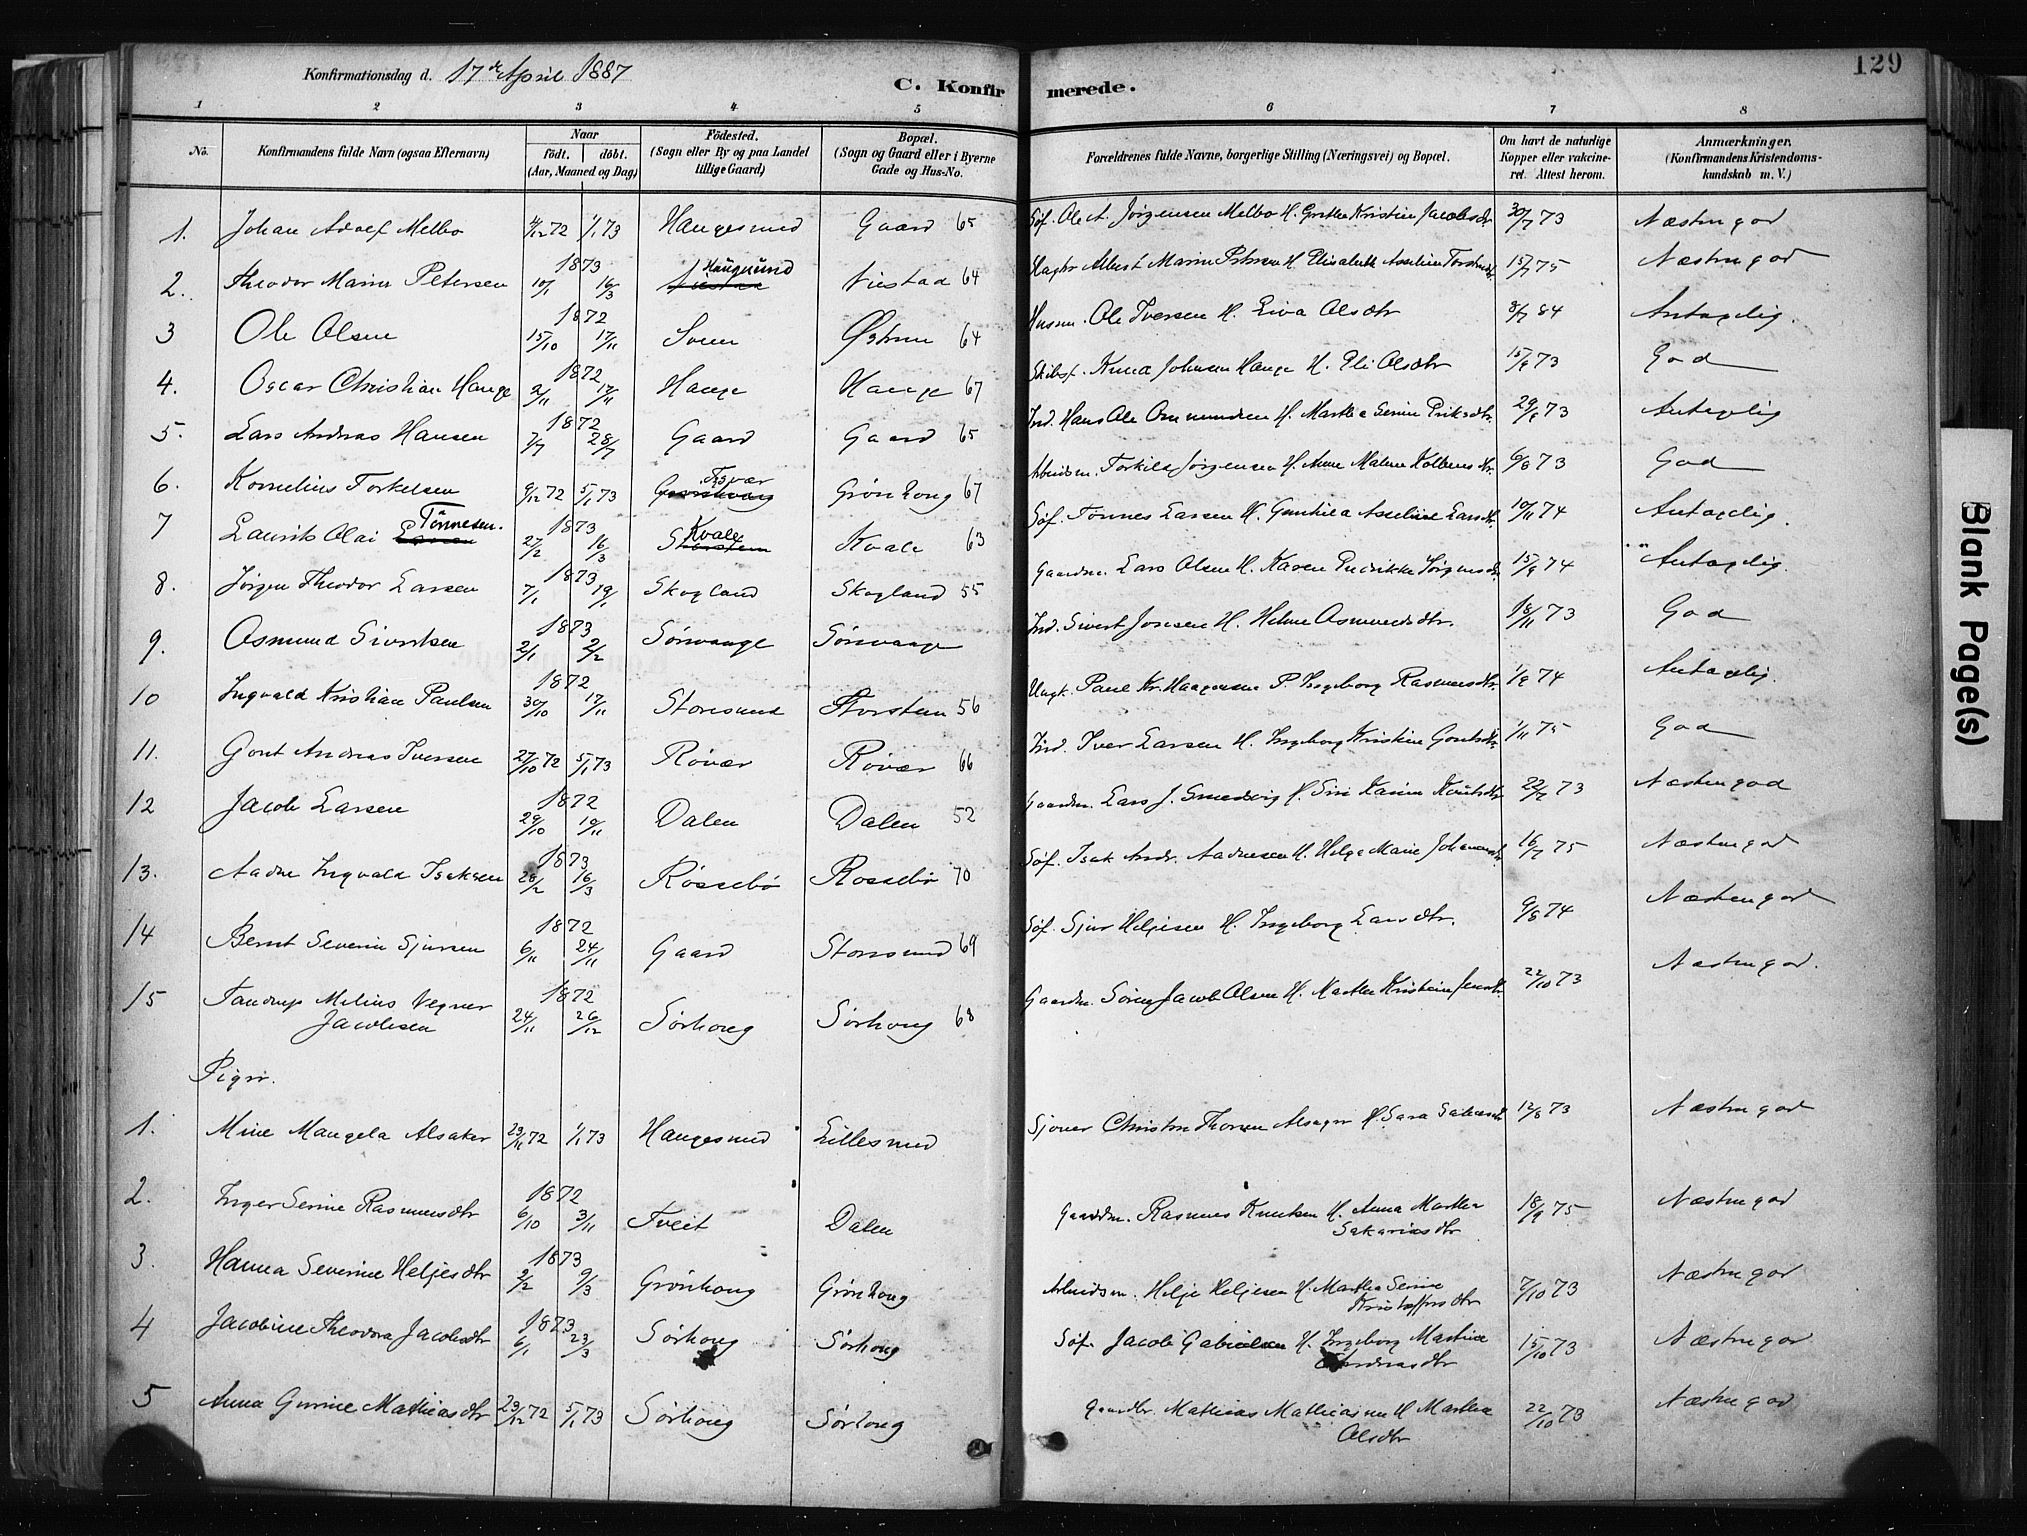 129
Konfirmationsdag d. 17de April 1887
C. Konfirmerede.
1 2 3 4 5 6 7 8
No. Konfirmandens fulde Navn (ogsaa Efternavn) Naar födt. döbt. (Aar, Maaned og Dag) Födested. (Sogn eller By og paa Landet tillige Gaard) Bopæl. (Sogn og Gaard eller i Byerne Gade og Hus-No. Forældrenes fulde Navne, borgerlige Stilling (Næringsvei) og Bopæl. Om havt de naturlige Kopper eller vakcineret. Attest herom. Anmærkninger. (Konfirmandens Kristendomskundskab m. V.)
1. Johan Adolf Melbo 4/12 72 1/1 73 Haugesund Gaard 65 Söf. Ole A. Jørgensen Melbo H. Grethe Kristine Jacobsdtr 30/7 73 Næstengod
2. Theodor Marius Petersen 1873 10/1 16/3 Haugesund 64 Albert Marius Petersen H. Elisabeth Asseline 15/7 75 Næstengod
3 Ole Olsen 1872 15/10 17/11 64 Husm. Ole Iversen H. Eva Olsdtr 8/7 84 Antagelig.
4. Oscar Christian Hauge 1872 2/11 17/11 Hauge Hauge 67 Knud Johnsen Hauge H. Eli Olsdtr 15/9 73 God
5. Lars Andreas Hansen 1872 7/7 28/7 Gaard Gaard 65 Ind. Hans Ole Ommundsen H. Martha Serine Eriksdtr. 29/8 73 Antagelig
6. Kornelius Torkelsen 9/12 72 5/1 73 Grønhoug 67 Arbeidsm. Torkild Jørgensen H. Anne Malene 6/8 73 God
7 Laurits Olai Tönnesen. 1873 27/2 16/3 Kvale Kvale 63 Söf. Tønnes Larsen H. Gunhild Asseline Larsdtr. 10/11 74 Antagelig.
8. Jørgen Theodor Larsen 1873 7/1 19/1 Skogland Skogland 55 Gaardm. Lars Olsen H. Karen Fredrikke Jørgensdtr 15/9 74 Antagelig.
9. Osmund Sivertsen 1873 2/1 2/2 Sörvaage Sörvaage Ind. Sivert Jonsen H. Helene Osmundsdtr. 18/11 73 God
10 Ingvald Kristian Paulsen 1872 30/10 17/11 Storesund 56 Ungk. Paul Kr. Haagensen P. Ingeborg Rasmusdtr. 1/9 74 Antagelig.
11. Gont Andreas Iversen 27/10 72 5/1 73 Røvær Røvær 66 Ind. Iver Larsen H. Ingeborg Kristine Gontsdtr 1/11 75 God
12 Jacob Larsen 1872 29/10 10/11 Dalen Dalen 52 Gaardm. Lars J. Smedsvig H. Siri Karine Knutsdtr 22/7 73 Næstengod
13. Aadne Ingvald Isaksen 1873 28/2 16/3 Røssebø Rossebø 70 Söf. Isak Andr. Aadnesen H. Helga Marie Johannesdtr 16/7 75 Næstengod
14 Bernt Severin Sjursen 1872 6/11 24/11 Gaard Storesund 69 Söf. Sjur Heljesen H. Ingeborg Larsdtr. 9/8 74 Næstengod
15 Tandrup Milius Vegner Jacobsen 1872 24/11 26/12 Sørhoug Sørhoug 68 Gaardm. Søren Jacob Olsen H. Martha Kristine 22/10 73 Næstengod.
Piger.
1. Mine Mangela Alsaker 23/11 72 1/1 73 Haugesund Lillesund Christen Thorsen H. Sara 12/8 73 Næstengod
2. Inger Serine Rasmusdtr 1872 6/10 3/11 Tveit Dalen Gaardm. Rasmus Knutsen H. Anna Martha Sakariasdtr 18/9 75 Næstengod
3. Hanna Severine Heljesdtr 1873 2/2 9/3 Grønhoug Grønhoug Arbeidsm. Helje Heljesen H. Martha Serine Kristoffersdtr 7/10 73 Næstengod
4 Jacobine Theodora Jacobsdtr 1873 6/1 23/3 Sörhoug Sörhoug Söf. Jacob Gabrielsen H. Ingeborg Martine Andreasdtr 15/10 73 Næstengod
5 Anna Gurine Mathiasdtr 29/12 72 5/1 73 Sörhoug Sörhoug Mathias Mathiasen H Martha Olsdtr 22/10 73 Næstengod
Blank Page(s)